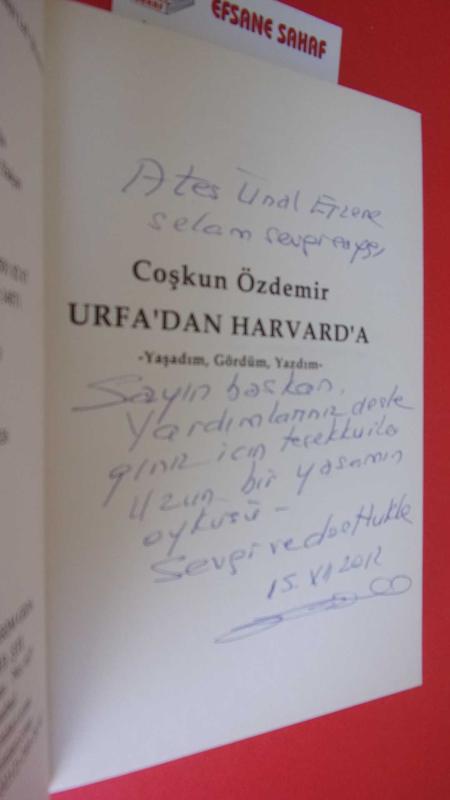 EFSANE SAHAF
Ateş Ünal Erzene
selam sevgi saygı
Coşkun Özdemir
URFA'DAN HARVARD'A
-Yaşadım, Gördüm, Yazdım-
Sayın başkan,
Yardımlarınız deste
ğiniz için teşekkürle
Uzun bir yaşamın
öyküsü -
Sevgi ve dostlukla
15.XI 2012